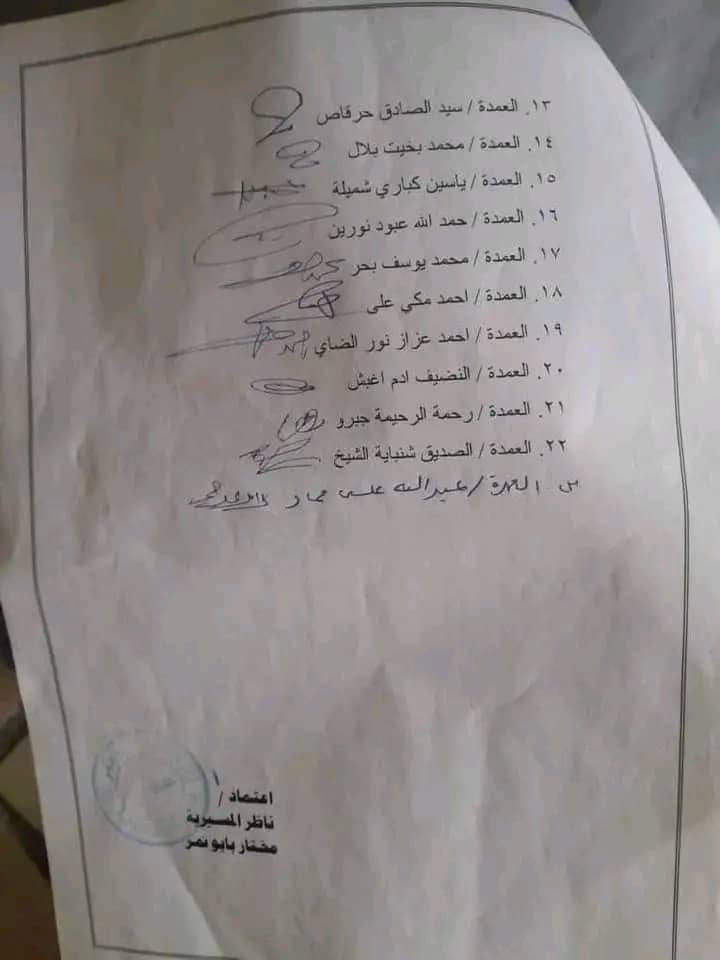 ١٣. العمدة / سيد الصادق حرقاص
١٤. العمدة / محمد بخيت بلال
١٥. العمدة / ياسين كباري شميلة
١٦. العمدة / حمد الله عبود نورين
١٧. العمدة / محمد يوسف بحر
١٨. العمدة / احمد مكي على
١٩. العمدة / احمد عزاز نور الضاي
٢٠. العمدة / النضيف ادم اغبش
٢١. العمدة / رحمة الرحيمة جبرو
٢٢. العمدة / الصديق شنباية الشيخ
العمدة / عبدالله على
اعتماد /
ناظر المسيرية
مختار بابو نمر